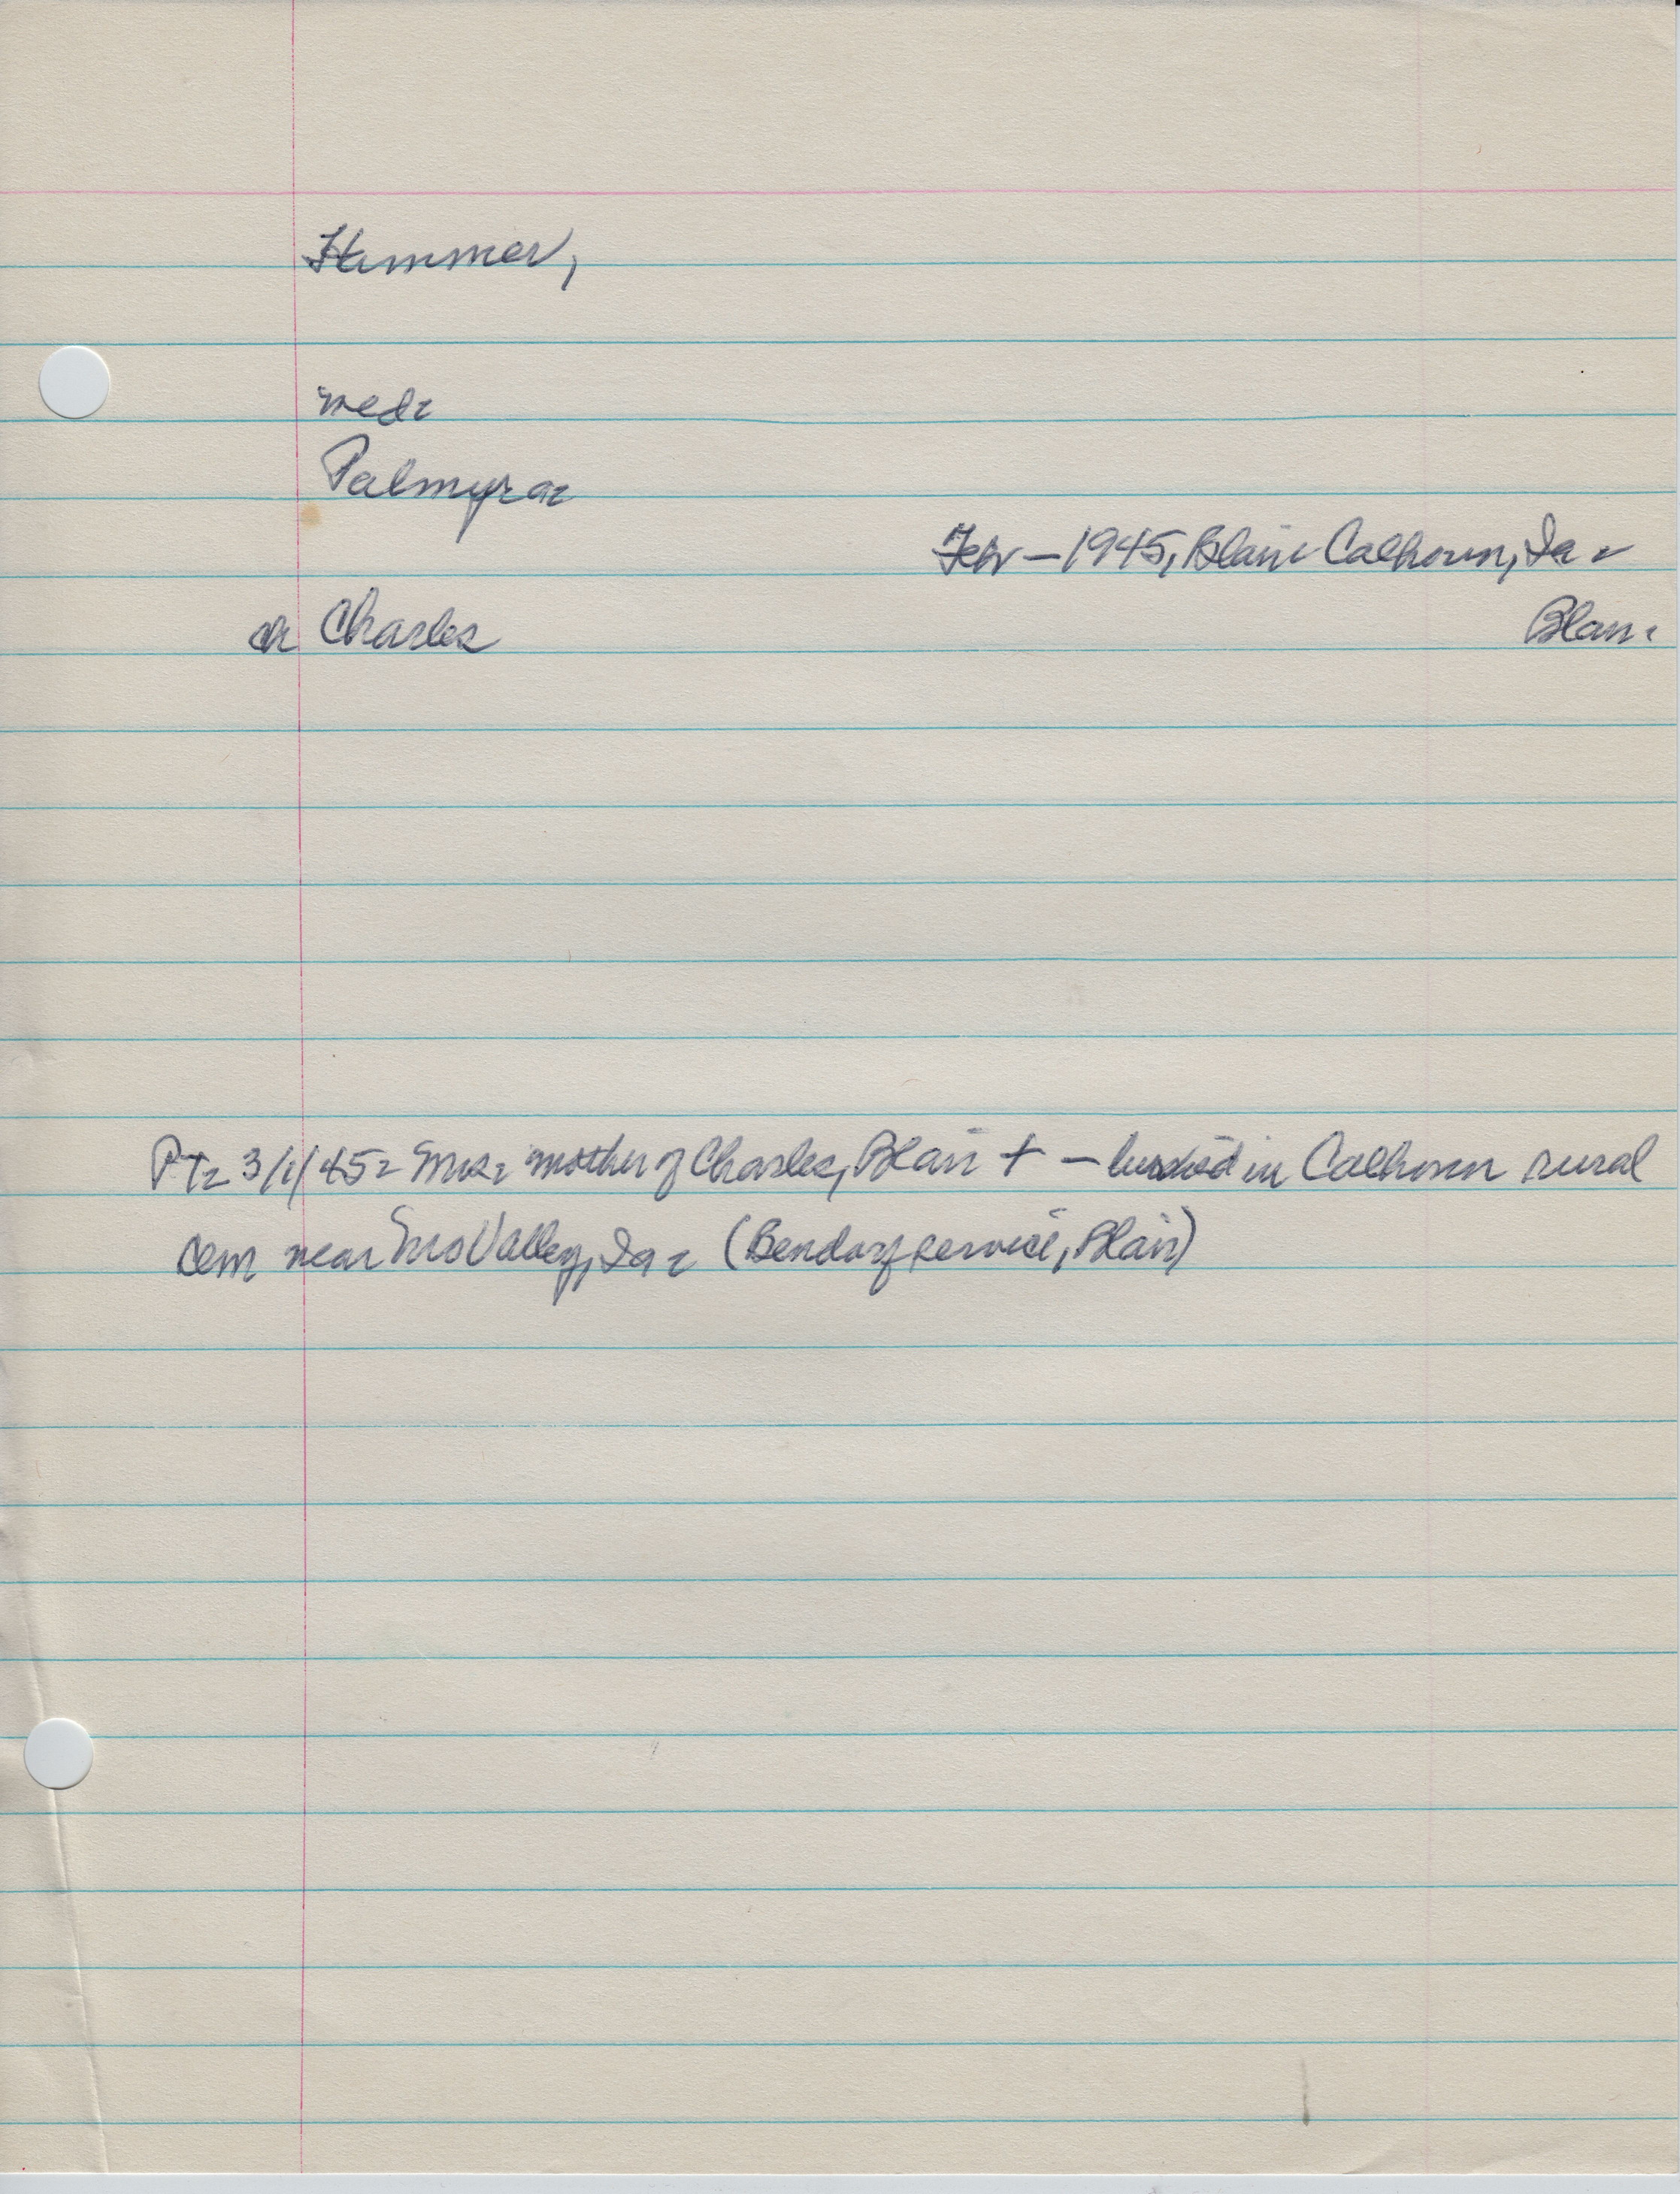 Hammer,
wed-
Palmyra-
Febr - 1945, Blair Calhoun, Ia -
ch Charles Blair.
PT- 3/1/45 - Mrs - mother of Charles, Blair + - buried in Calhoun rural
cem near Mo Valley, Ia - (Bendorf service, Blair)